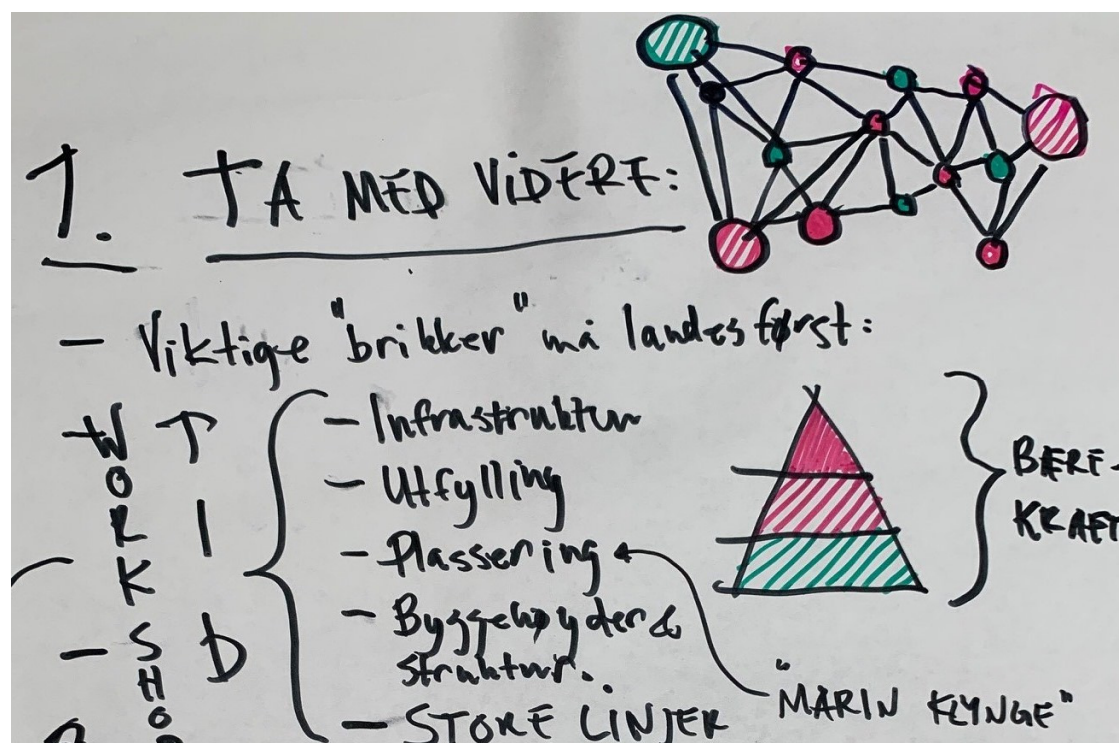 1. TA MED VIDERE:
- Viktige "brikker" må landes først:
WORKSHO
TID
- Infrastruktur
- Utfylling
- Plassering
- Byggehøyder &
struktur.
- STORE LINJER
BÆRE-
KRAFT
"MARIN KLYNGE"